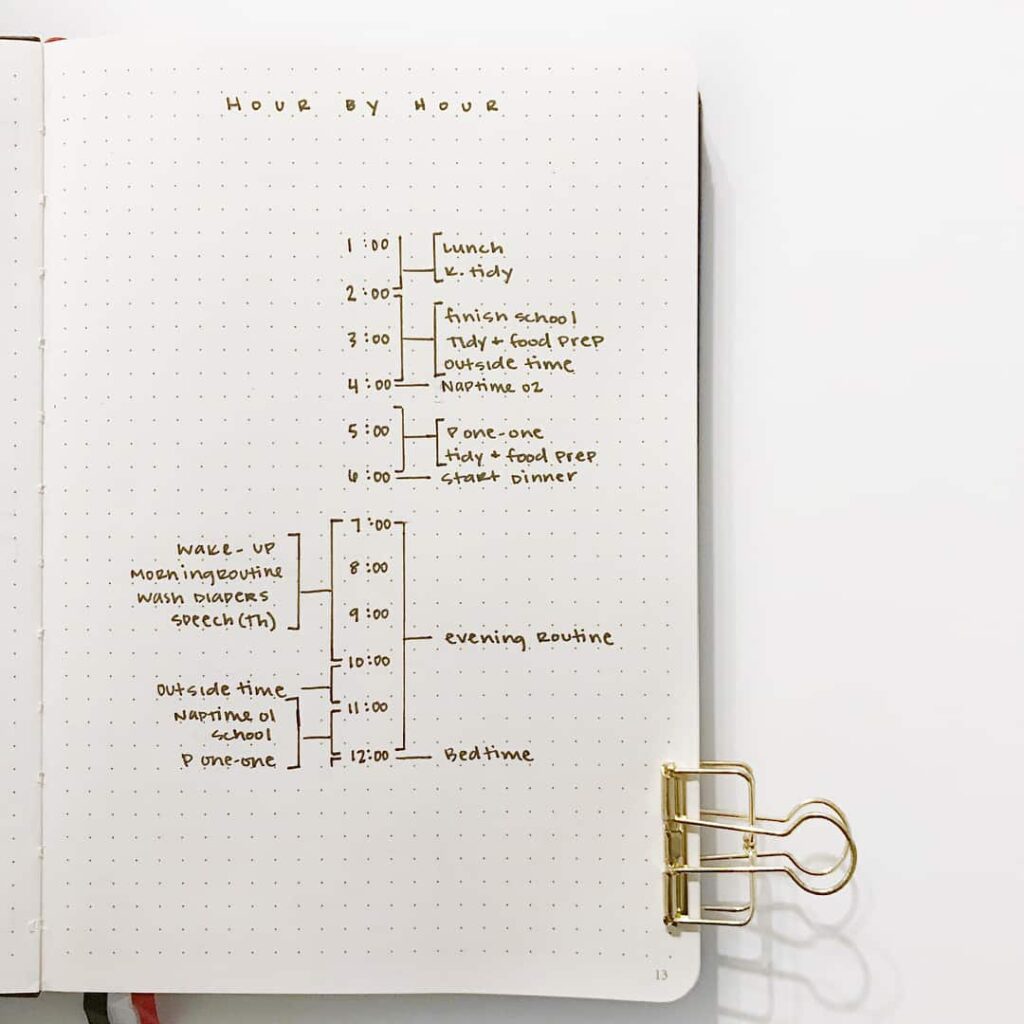 HOUR BY HOUR
1:00 Lunch
K. tidy
2:00
finish school
3:00 Tidy + food prep
outside time
4:00 Naptime 02
5:00 P one-one
tidy + food prep
6:00 Start Dinner
7:00
wake-up
Morning routine 8:00
wash diapers
speech (Th) 9:00
evening routine
10:00
outside time
Naptime 01 11:00
school
P one-one 12:00 Bedtime
13